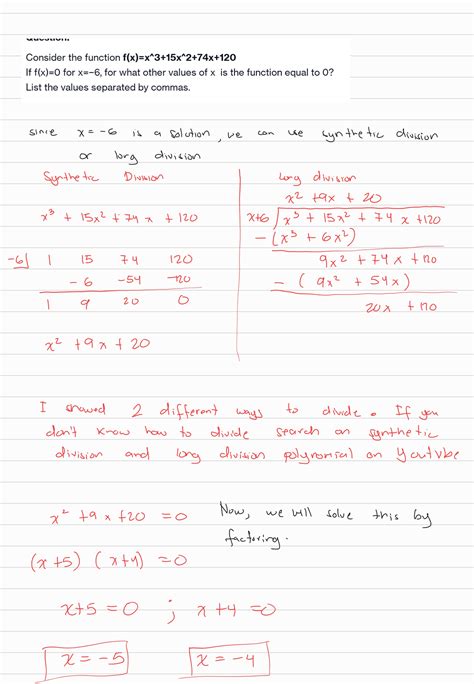 Question:
Consider the function f(x)=x^3+15x^2+74x+120
If f(x)=0 for x=−6, for what other values of x is the function equal to 0?
List the values separated by commas.
since x = -6 is a solution, we can use synthetic division
or long division
Synthetic Division
x³ + 15x² + 74x + 120
-6| 1 15 74 120
-6 -54 -120
1 9 20 0
x² + 9x + 20
Long division
x² + 9x + 20
x+6 x³ + 15x² + 74x + 120
- (x³ + 6x²)
9x² + 74x + 120
- (9x² + 54x)
20x + 120
I showed 2 different ways to divide. If you
don't know how to divide search on synthetic
division and long division polynomial on Youtube
x² + 9x + 20 = 0 Now, we will solve this by
factoring.
(x+5) (x+4) = 0
x+5 = 0 ; x+4 = 0
x = -5 x = -4